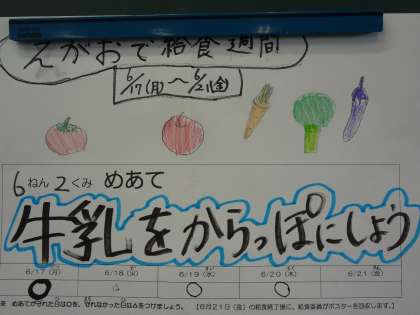 えがおで給食週間
6/17(月)～6/21(金)
6ねん2くみ めあて
牛乳をからっぽにしよう
6/17(月) 6/18(火) 6/19(水) 6/20(木) 6/21(金)
○ △ ○ ○
※ めあてができた日は○を、できなかった日は△をつけましょう。【6月21日(金)の給食終了後に、給食委員がポスターを回収します。】